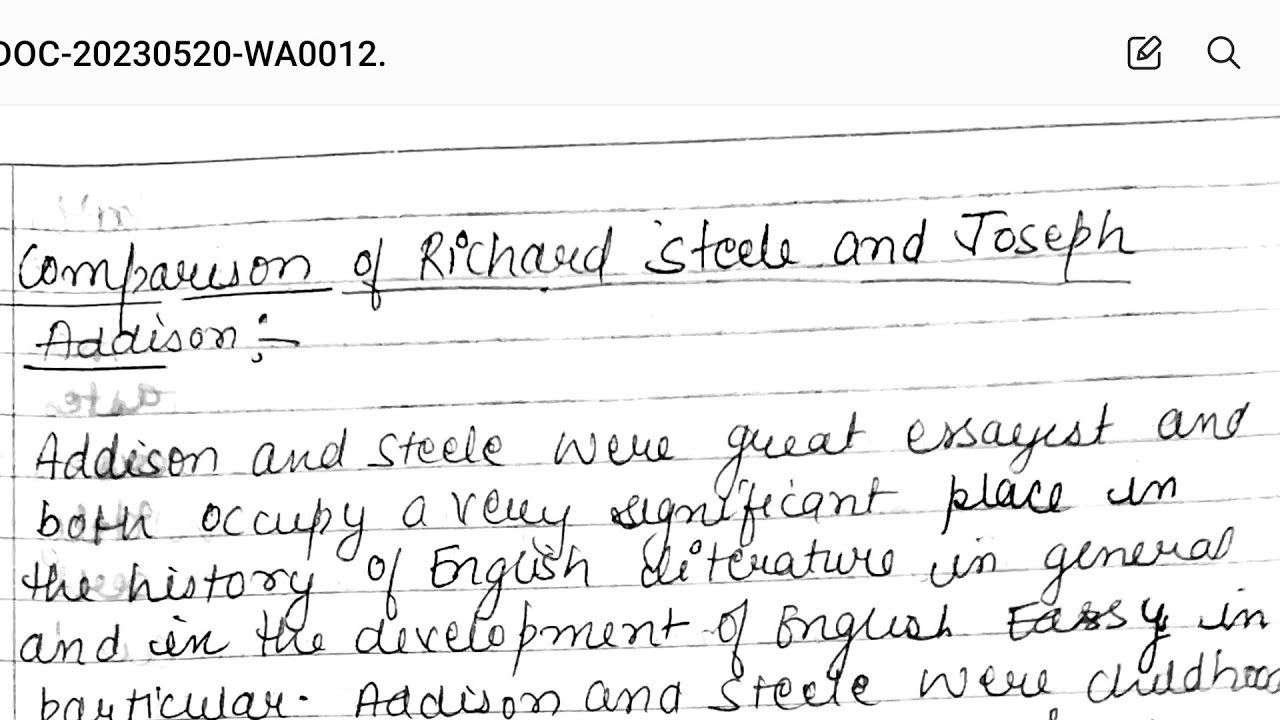 DOC-20230520-WA0012.
Comparison of Richard Steele and Joseph
Addison :-
Addison and Steele were great essayest and
both occupy a very significant place in
the history of English literature in general
and in the development of English Eassy in
particular. Addison and Steele were childhood